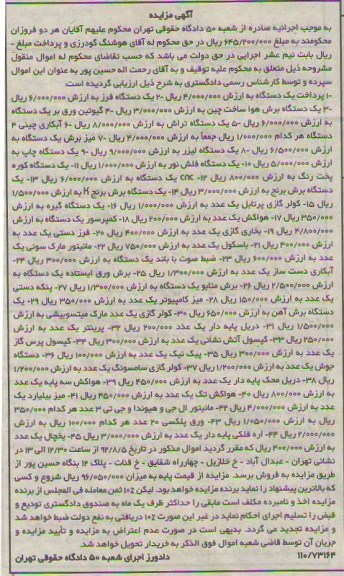 آگهی مزایده
به موجب اجرائیه صادره از شعبه ۵۰ دادگاه حقوقی تهران محکوم علیهم آقایان هر دو فروزان
محکومند به مبلغ ۶۴۵/۲۰۰/۰۰۰ ریال در حق محکوم له آقای هوشنگ گودرزی و پرداخت مبلغ -
ریال بابت نیم عشر اجرایی در حق دولت می باشد که حسب تقاضای محکوم له اموال منقول
مشروحه ذیل متعلق به محکوم علیه توقیف و به آقای رحمت اله حسین پور به عنوان این اموال
سپرده و توسط کارشناس رسمی دادگستری به شرح ذیل ارزیابی گردیده است.
۱- پرداخت یک دستگاه به ارزش ۴/۰۰۰/۰۰۰ ریال ۲- یک دستگاه فرز به ارزش ۶/۰۰۰/۰۰۰ ریال
۳- یک دستگاه برش هوا ساخت چین به ارزش ۳/۰۰۰/۰۰۰ ریال ۴- گیوتین ورق بر یک دستگاه
به ارزش ۶/۰۰۰/۰۰۰ ریال ۵- یک دستگاه تراش به ارزش ۸/۰۰۰/۰۰۰ ریال ۶- آبکاری چینی ۴
دستگاه هر کدام ۱/۰۰۰/۰۰۰ ریال جمعاً به ارزش ۴/۰۰۰/۰۰۰ ریال ۷- میز برش یک دستگاه به
ارزش ۶/۵۰۰/۰۰۰ ریال ۸- یک دستگاه لیزر به ارزش ۹/۰۰۰/۰۰۰ ریال ۹- یک دستگاه چاپ به
ارزش ۵/۰۰۰/۰۰۰ ریال ۱۰- یک دستگاه فلش نور به ارزش ۱/۰۰۰/۰۰۰ ریال ۱۱- یک دستگاه کوره
پخت رنگ به ارزش ۸۰۰/۰۰۰ ریال ۱۲- cnc یک دستگاه به ارزش ۶/۰۰۰/۰۰۰ ریال ۱۳- یک
دستگاه برش برنج به ارزش ۳/۰۰۰/۰۰۰ ریال ۱۴- یک دستگاه برش برنج H به ارزش ۱/۵۰۰/۰۰۰
ریال ۱۵- کولر گازی پرتابل یک عدد به ارزش ۱/۰۰۰/۰۰۰ ریال ۱۶- یک دستگاه گیره به ارزش
۳۵۰/۰۰۰ ریال ۱۷- هواکش یک عدد به ارزش ۲۰۰/۰۰۰ ریال ۱۸- کمپرسور یک دستگاه به ارزش
۴/۸۰۰/۰۰۰ ریال ۱۹- بخاری گازی یک عدد به ارزش ۴۰۰/۰۰۰ ریال ۲۰- فرز دستی یک عدد به
ارزش ۴۰۰/۰۰۰ ریال ۲۱- باسکول یک عدد به ارزش ۷۵۰/۰۰۰ ریال ۲۲- مانیتور مارک سونی یک
عدد به ارزش ۶۰۰/۰۰۰ ریال ۲۳- ضبط صوت با باند یک دستگاه به ارزش ۳۰۰/۰۰۰ ریال ۲۴-
آبکاری دست ساز یک عدد به ارزش ۱/۳۰۰/۰۰۰ ریال ۲۵- برش ورق ایستاده یک دستگاه به
ارزش ۲/۵۰۰/۰۰۰ ریال ۲۶- برش متابو یک دستگاه به ارزش ۱/۳۰۰/۰۰۰ ریال ۲۷- پنکه دستی
یک عدد به ارزش ۱۵۰/۰۰۰ ریال ۲۸- میز کامپیوتر یک عدد به ارزش ۳۵۰/۰۰۰ ریال ۲۹- یک
دستگاه برش آهن به ارزش ۶۵۰/۰۰۰ ریال ۳۰- کولر گازی یک عدد مارک میتسوبیشی به ارزش
۱/۵۰۰/۰۰۰ ریال ۳۱- دریل پایه دار یک عدد ۲۰۰/۰۰۰ ریال ۳۲- پرینتر یک عدد به ارزش
۲۵۰/۰۰۰ ریال ۳۳- کپسول آتش نشانی یک عدد به ارزش ۳۰۰/۰۰۰ ریال ۳۴- کپسول پرس گاز
یک عدد به ارزش ۳۰۰/۰۰۰ ریال ۳۵- پیک نیک یک عدد به ارزش ۱۰۰/۰۰۰ ریال ۳۶- دستگاه
جوش یک عدد به ارزش ۱/۲۰۰/۰۰۰ ریال ۳۷- کولر گازی سامسونگ یک عدد به ارزش ۱/۲۰۰/۰۰۰
ریال ۳۸- دریل محک پایه دار یک عدد به ارزش ۴۵۰/۰۰۰ ریال ۳۹- هواکش سه پایه یک عدد
به ارزش ۸۰۰/۰۰۰ ریال ۴۰- هواکش تک یک عدد به ارزش ۴۵۰/۰۰۰ ریال ۴۱- میز بیلیارد یک
عدد به ارزش ۴/۰۰۰/۰۰۰ ریال ۴۲- مانیتور ال جی و هیوندا و جی تی ۳ عدد هر کدام ۳۵۰/۰۰۰
ریال به ارزش ۱/۰۵۰/۰۰۰ ریال ۴۳- ورق پلکسی ۲۰ عدد هر کدام ۱۰۰/۰۰۰ ریال به ارزش
۲/۰۰۰/۰۰۰ ریال ۴۴- اره فلکی پایه دار یک عدد به ارزش ۳/۰۰۰/۰۰۰ ریال ۴۵- یخچال یک عدد
به ارزش ۴۰۰/۰۰۰ ریال که مقرر گردید اموال مذکور در تاریخ ۹۲/۸/۵ از ساعت ۱۲/۳۰ الی ۱۳ در
نشانی تهران - عبدل آباد - خ خلازیل - چهارراه شقایق - خ قنات - پلاک ۱۲ بنگاه حسین پور از
طریق مزایده به فروش برسد. مزایده از قیمت پایه به میزان ۹۶/۰۵۰/۰۰۰ ریال شروع و کسی
که بالاترین پیشنهاد را نماید برنده مزایده خواهد بود. لیکن ۱۰٪ ثمن معامله فی المجلس از برنده
مزایده اخذ و نامبرده مکلف است مابقی را حداکثر ظرف یک ماه به صندوق دادگستری تودیع و
قبض را تسلیم اجرای احکام نماید در غیر این صورت ۱۰٪ دریافتی به نفع دولت ضبط خواهد شد
و مزایده تجدید می گردد. بدیهی است در صورت عدم اعتراض به مزایده و تأیید مزایده و
جریان آن توسط قاضی شعبه اموال فوق الذکر به خریدار تحویل خواهد شد.
۱۱۰/۷۳۱۶۴ دادورز اجرای شعبه ۵۰ دادگاه حقوقی تهران